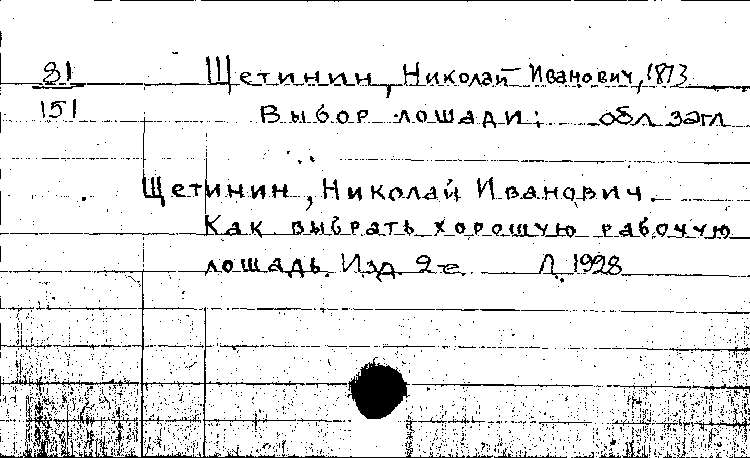 81 Щетинин, Николай Иванович, 1873
151 Выбор лошади; обл. загл
Щетинин, Николай Иванович.
Как выбрать хорошую рабочую
лошадь. Изд. 2-е. Л. 1928